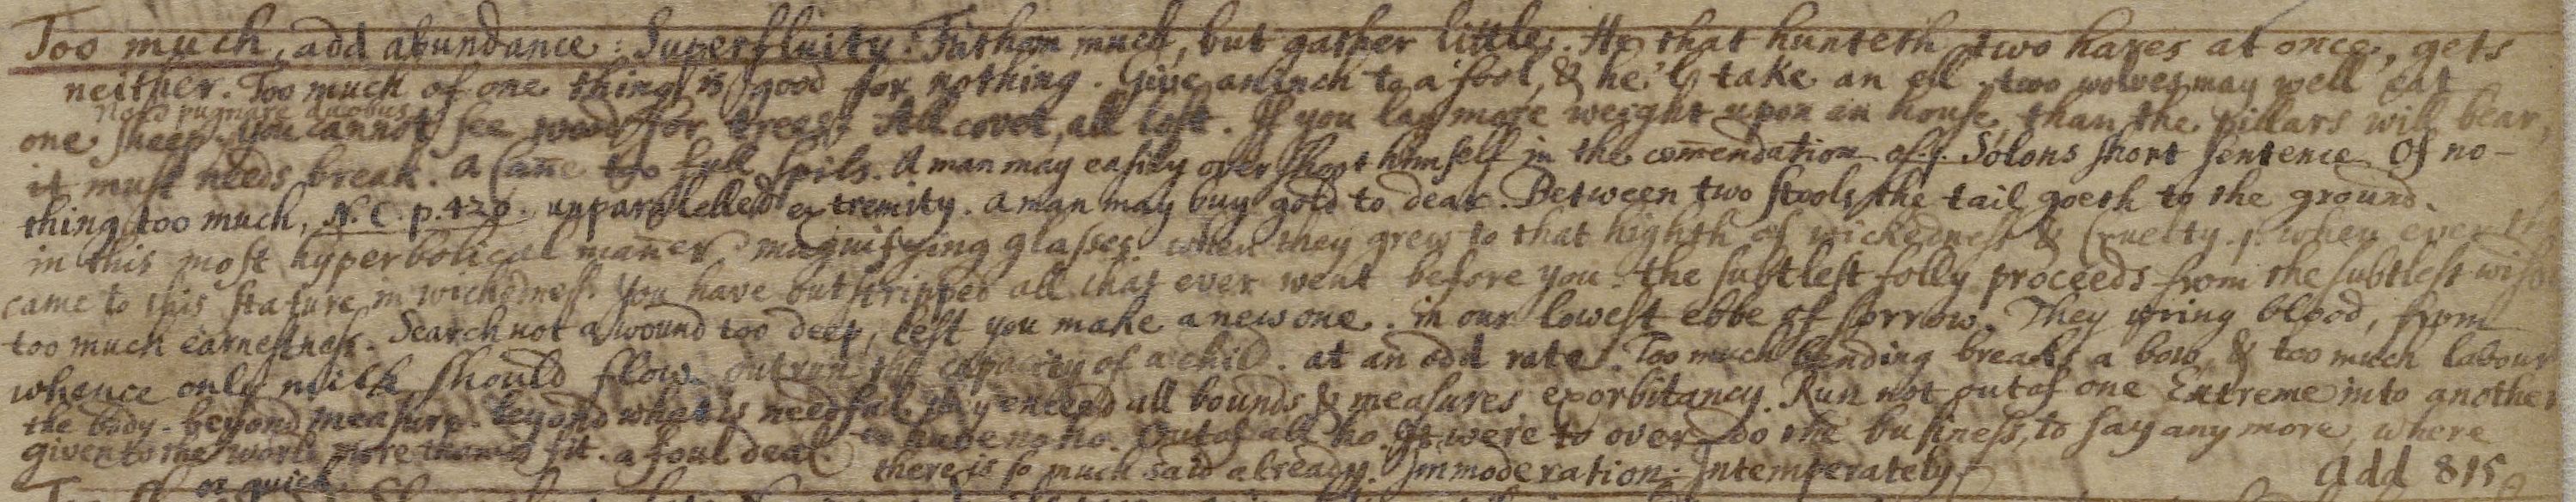 Too much, add abundance: Superfluity. Fathom much, but gather little. He that hunteth two hares at once, gets
neither. Too much of one thing is good for nothing. Give an inch to a fool, & he'l take an ell. two wolves may well eat
Noli pugnare duobus
one sheep. You cannot see wood for trees. All covet, all lost. If you lay more weight upon an house, than the pillars will bear,
it must needs break. a Cane too full spils. A man may easily over shoot himself in the comendation of. Solons short sentence Of no-
thing too much, N.C. p.420. unparalelled extremity. a man may buy gold to dear. Between two stools the tail goeth to the ground.
in this most hyperbolical maner magnifying glasses. when they grew to that highth of wickedness & Cruelty. when ever
came to this stature in wickedness. You have outstripped all that ever went before you. the subtlest folly proceeds from the subtlest
too much earnestness. Search not a wound too deep, lest you make a new one. in our lowest ebbe of sorrow. They wring blood, from
whence only milk should flow. outrun the capacity of a child. at an odd rate. Too much bending breaks a bow, & too much labour
the body. beyond measure. beyond what is needful. they exceed all bounds & measures exorbitancy. Run not out of one Extreme into another
given to the world more than is fit. a foul deal. to have no ho. Out of all ho. It were to over-do the business, to say any more, where
or quick there is so much said already. Immoderation. Intemperately. Add 815